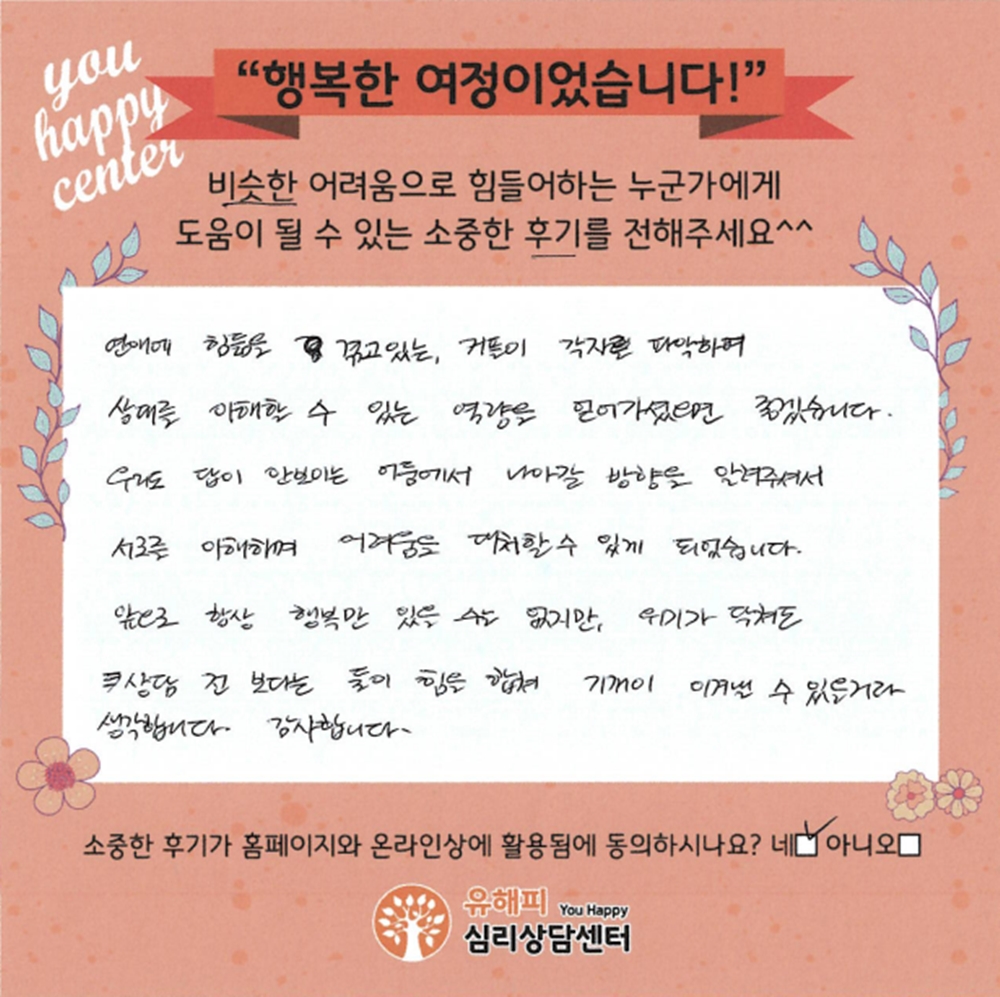 you
happy
center
“행복한 여정이었습니다!”
비슷한 어려움으로 힘들어하는 누군가에게
도움이 될 수 있는 소중한 후기를 전해주세요^^
연애에 힘듦을 겪고있는, 커플이 각자를 파악하며
상대를 이해할 수 있는 역량을 얻어가셨으면 좋겠습니다.
우리도 답이 안보이는 어둠에서 나아갈 방향을 알려주셔서
서로를 이해하며 어려움을 대처할 수 있게 되었습니다.
앞으로 항상 행복만 있을 수는 없지만, 위기가 닥쳐도
상담 전 보다는 둘이 힘을 합쳐 기꺼이 이겨낼 수 있을거라
생각합니다. 감사합니다.
소중한 후기가 홈페이지와 온라인상에 활용됨에 동의하시나요? 네☑ 아니오□
유해피 You Happy
심리상담센터